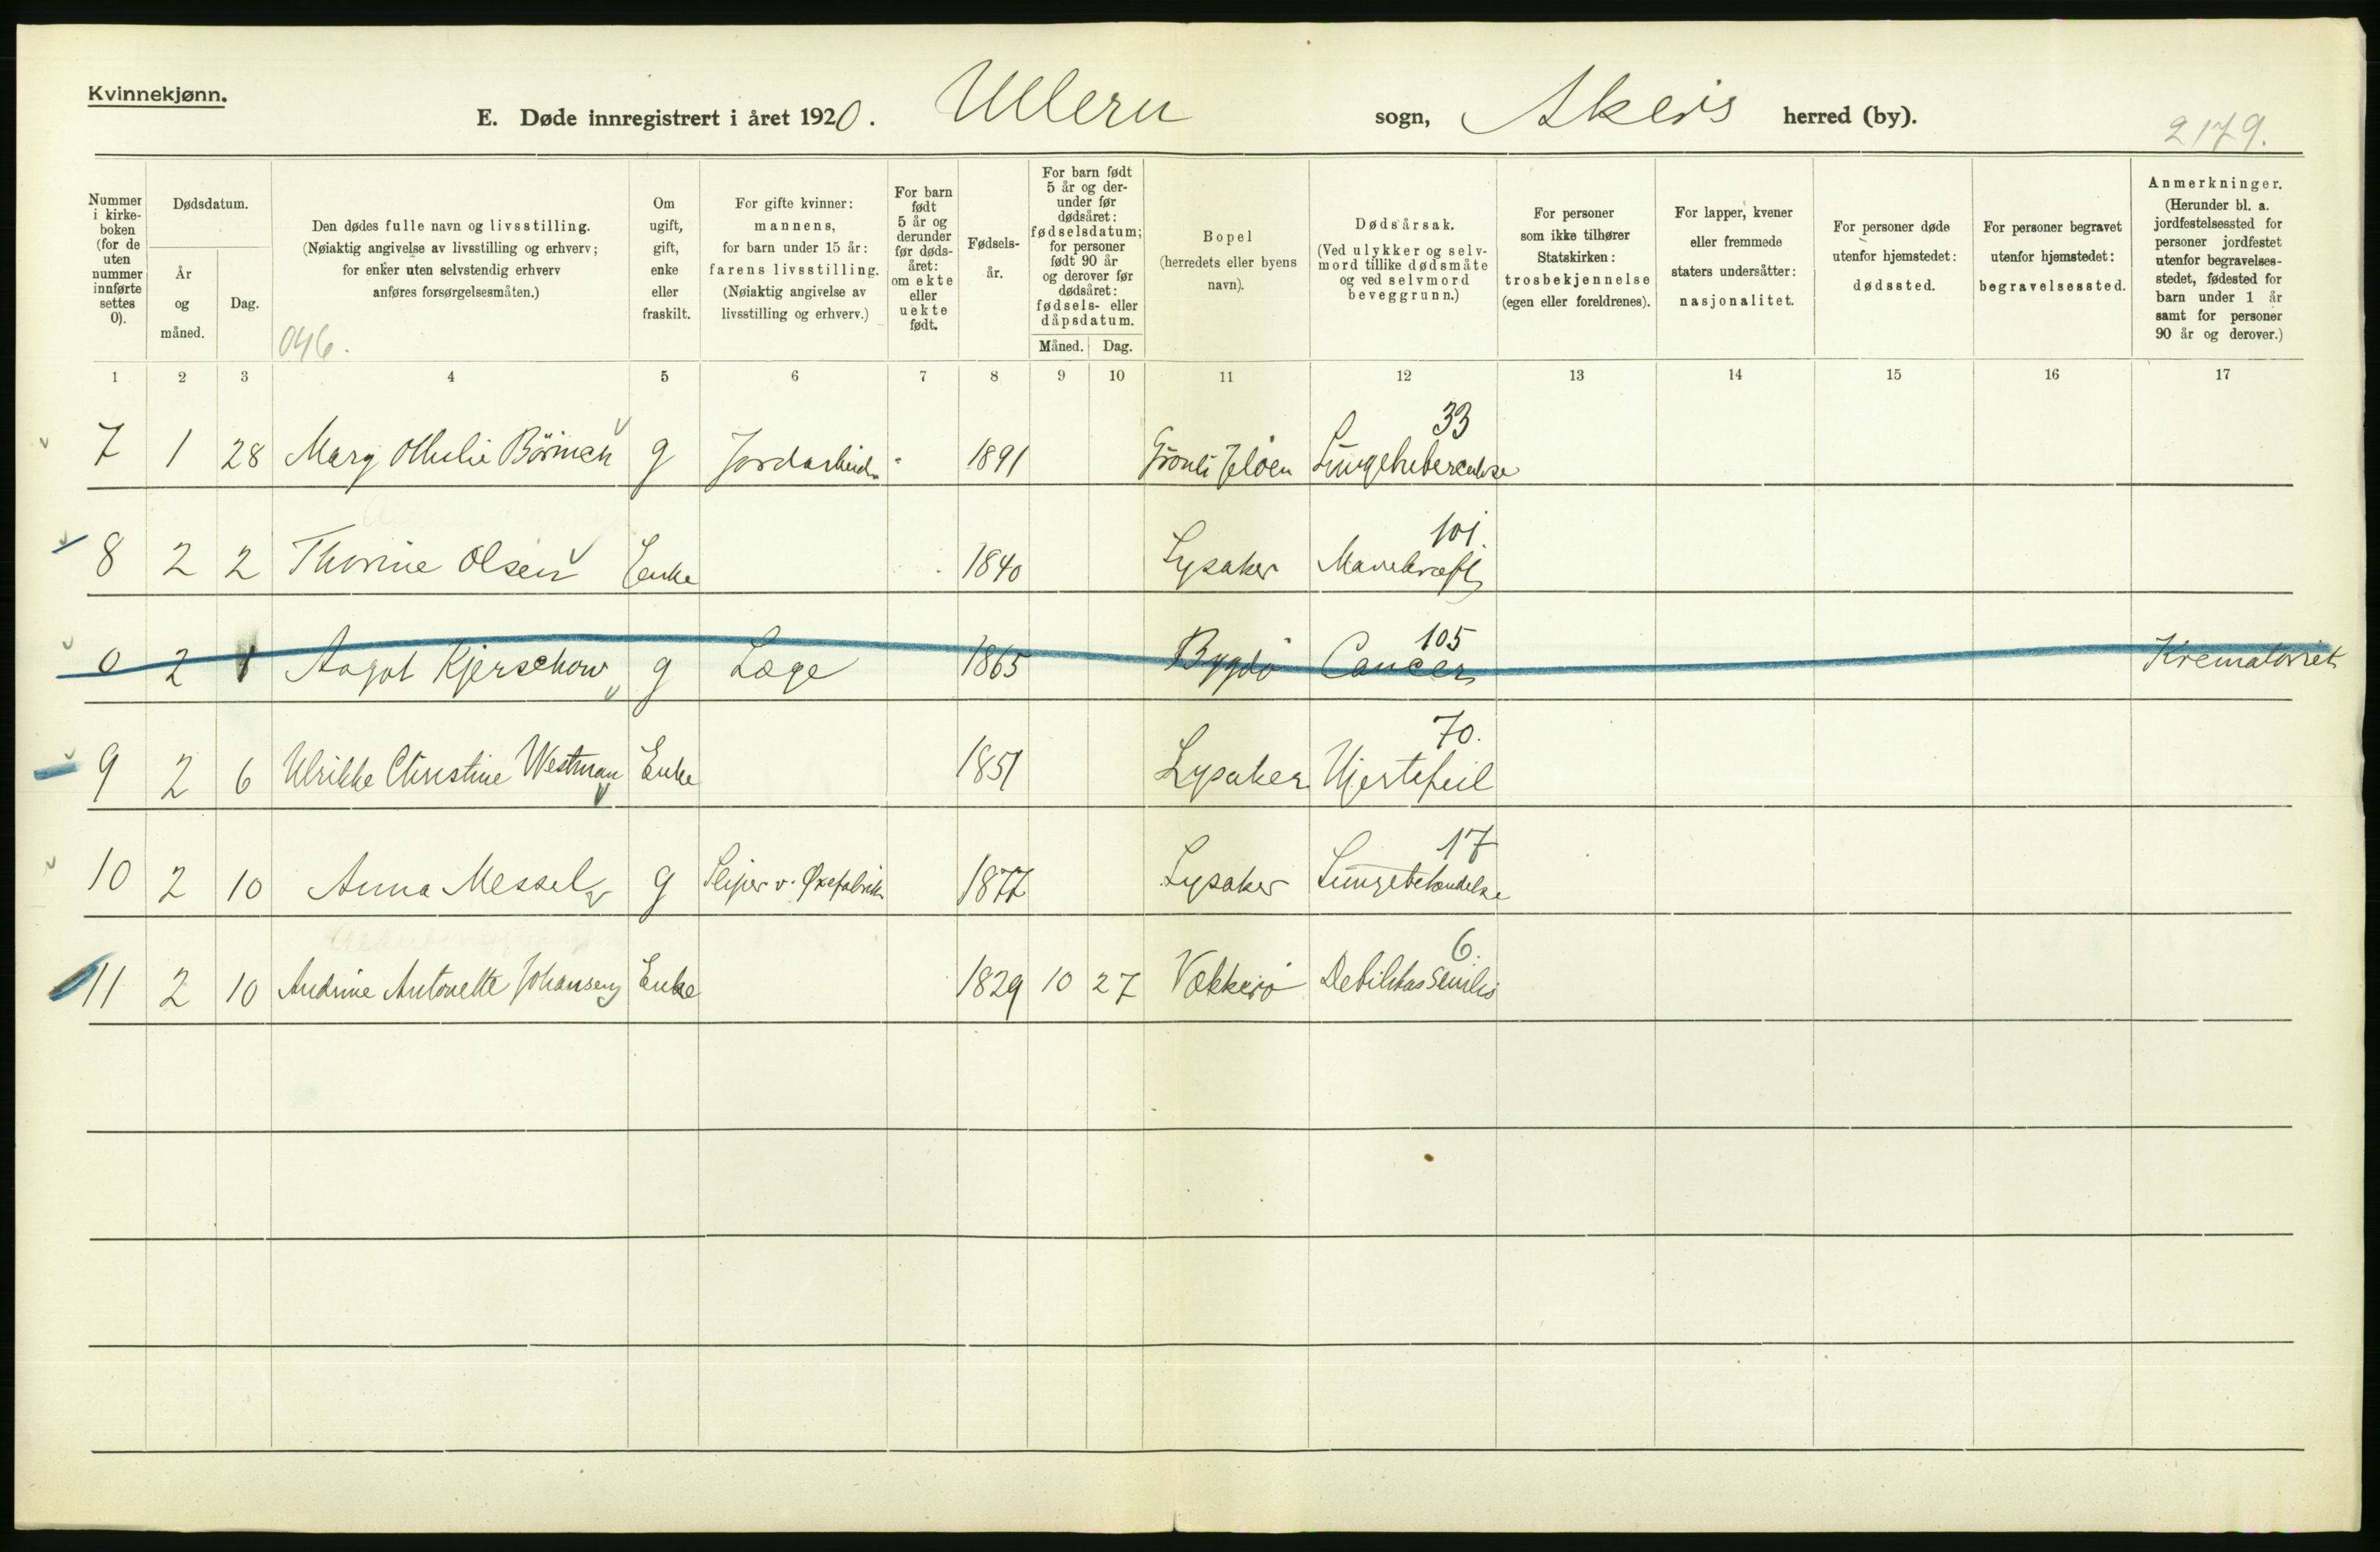 Kvinnekjønn.
E. Døde innregistrert i året 1920. Ullern sogn, Akers herred (by).
2179.
Nummer i kirke-boken (for de uten nummer innførte settes 0).
Dødsdatum.
År og måned.
Dag.
Den dødes fulle navn og livsstilling.
(Nøiaktig angivelse av livsstilling og erhverv;
for enker uten selvstendig erhverv
anføres forsørgelsesmåten.)
046.
Om ugift, gift, enke eller fraskilt.
For gifte kvinner:
mannens,
for barn under 15 år:
farens livsstilling.
(Nøiaktig angivelse av
livsstilling og erhverv.)
For barn født 5 år og derunder før døds-året: om ekte eller uekte født.
Fødsels-år.
For barn født 5 år og der-under før dødsåret: fødselsdatum; for personer født 90 år og derover før dødsåret: fødsels- eller dåpsdatum.
Måned. Dag.
Bopel
(herredets eller byens
navn).
Dødsårsak.
(Ved ulykker og selv-
mord tillike dødsmåte
og ved selvmord
beveggrunn.)
For personer
som ikke tilhører
Statskirken:
trosbekjennelse
(egen eller foreldrenes).
For lapper, kvener
eller fremmede
staters undersåtter:
nasjonalitet.
For personer døde
utenfor hjemstedet:
dødssted.
For personer begravet
utenfor hjemstedet:
begravelsessted.
Anmerkninger.
(Herunder bl. a.
jordfestelsessted for
personer jordfestet
utenfor begravelses-
stedet, fødested for
barn under 1 år
samt for personer
90 år og derover.)
1 2 3 4 5 6 7 8 9 10 11 12 13 14 15 16 17
33
7 1 28 Marg Othilie g 1891 Grönli Jeløen Lungetuberculose
101.
8 2 2 Thorine Olsen Enke 1840 Lysaker Mavekræft
105
0 2 1 Aagot Kjerschow g Læge 1865 Bygdö Cancer Krematoriet
70.
9 2 6 Ulrikke Christine Westman Enke 1851 Lysaker Hjertefeil
17
10 2 10 Anna Messel g Sliper v. Øxefabrik 1877 Lysaker
6.
11 2 10 Andrine Antonette Johansen Enke 1829 10 27 Vækkerö Debilitas senilis